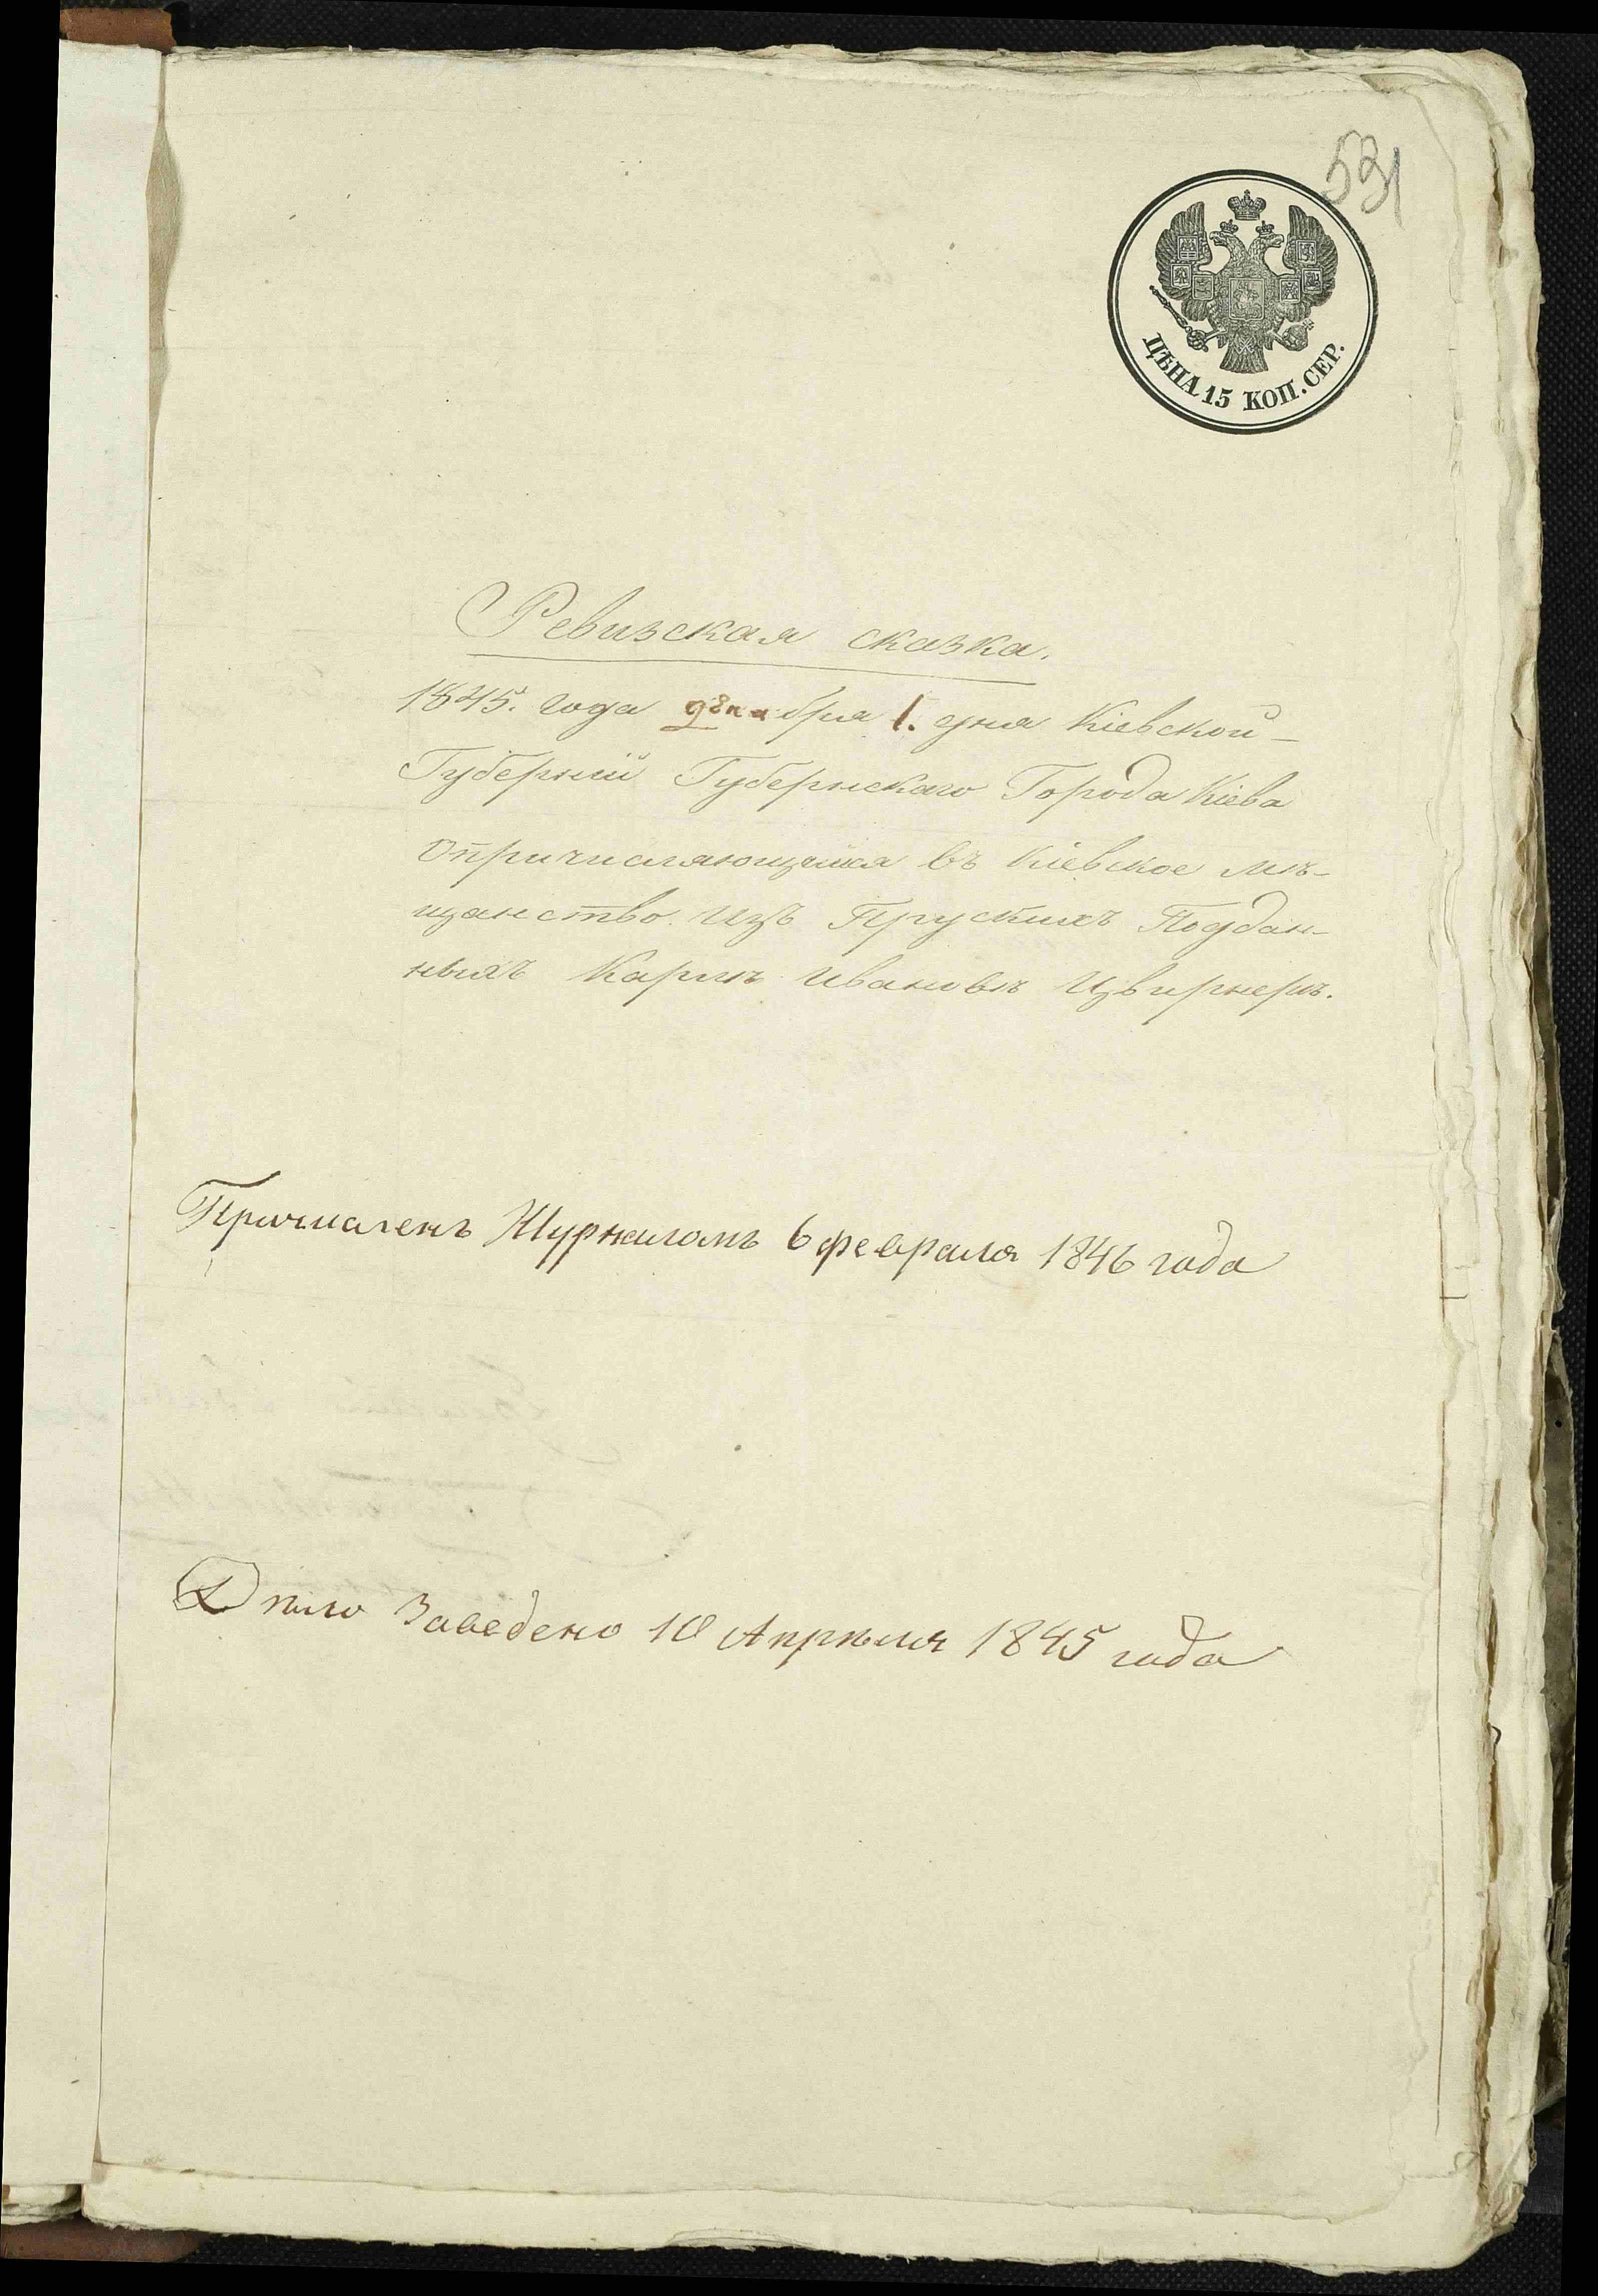 531
ЦѢНА 15 КОП. СЕР.
Ревизская сказка.
1845. года декабря 1. дня Кіевской
Губерніи Губернскаго Города Кіева
опричисляющемся въ Кіевское мѣ-
щанство изъ Прускихъ Поддан-
ныхъ Карлѣ Ивановѣ Цвирнерѣ.
Причисленъ Журналомъ 6 февраля 1846 года
Дѣло Заведено 10 Апрѣля 1845 года